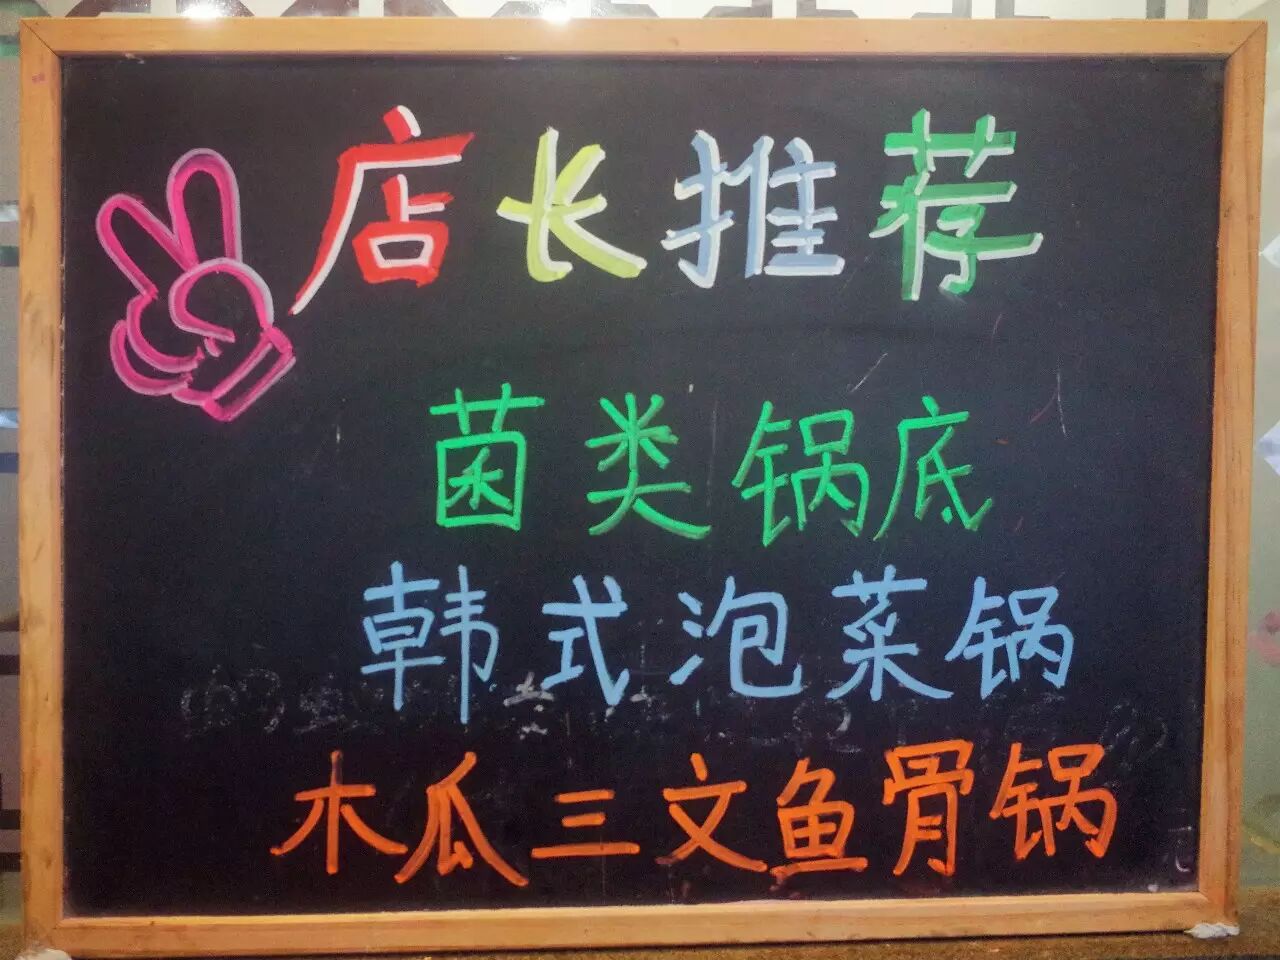 店长推荐
菌类锅底
韩式泡菜锅
木瓜三文鱼骨锅